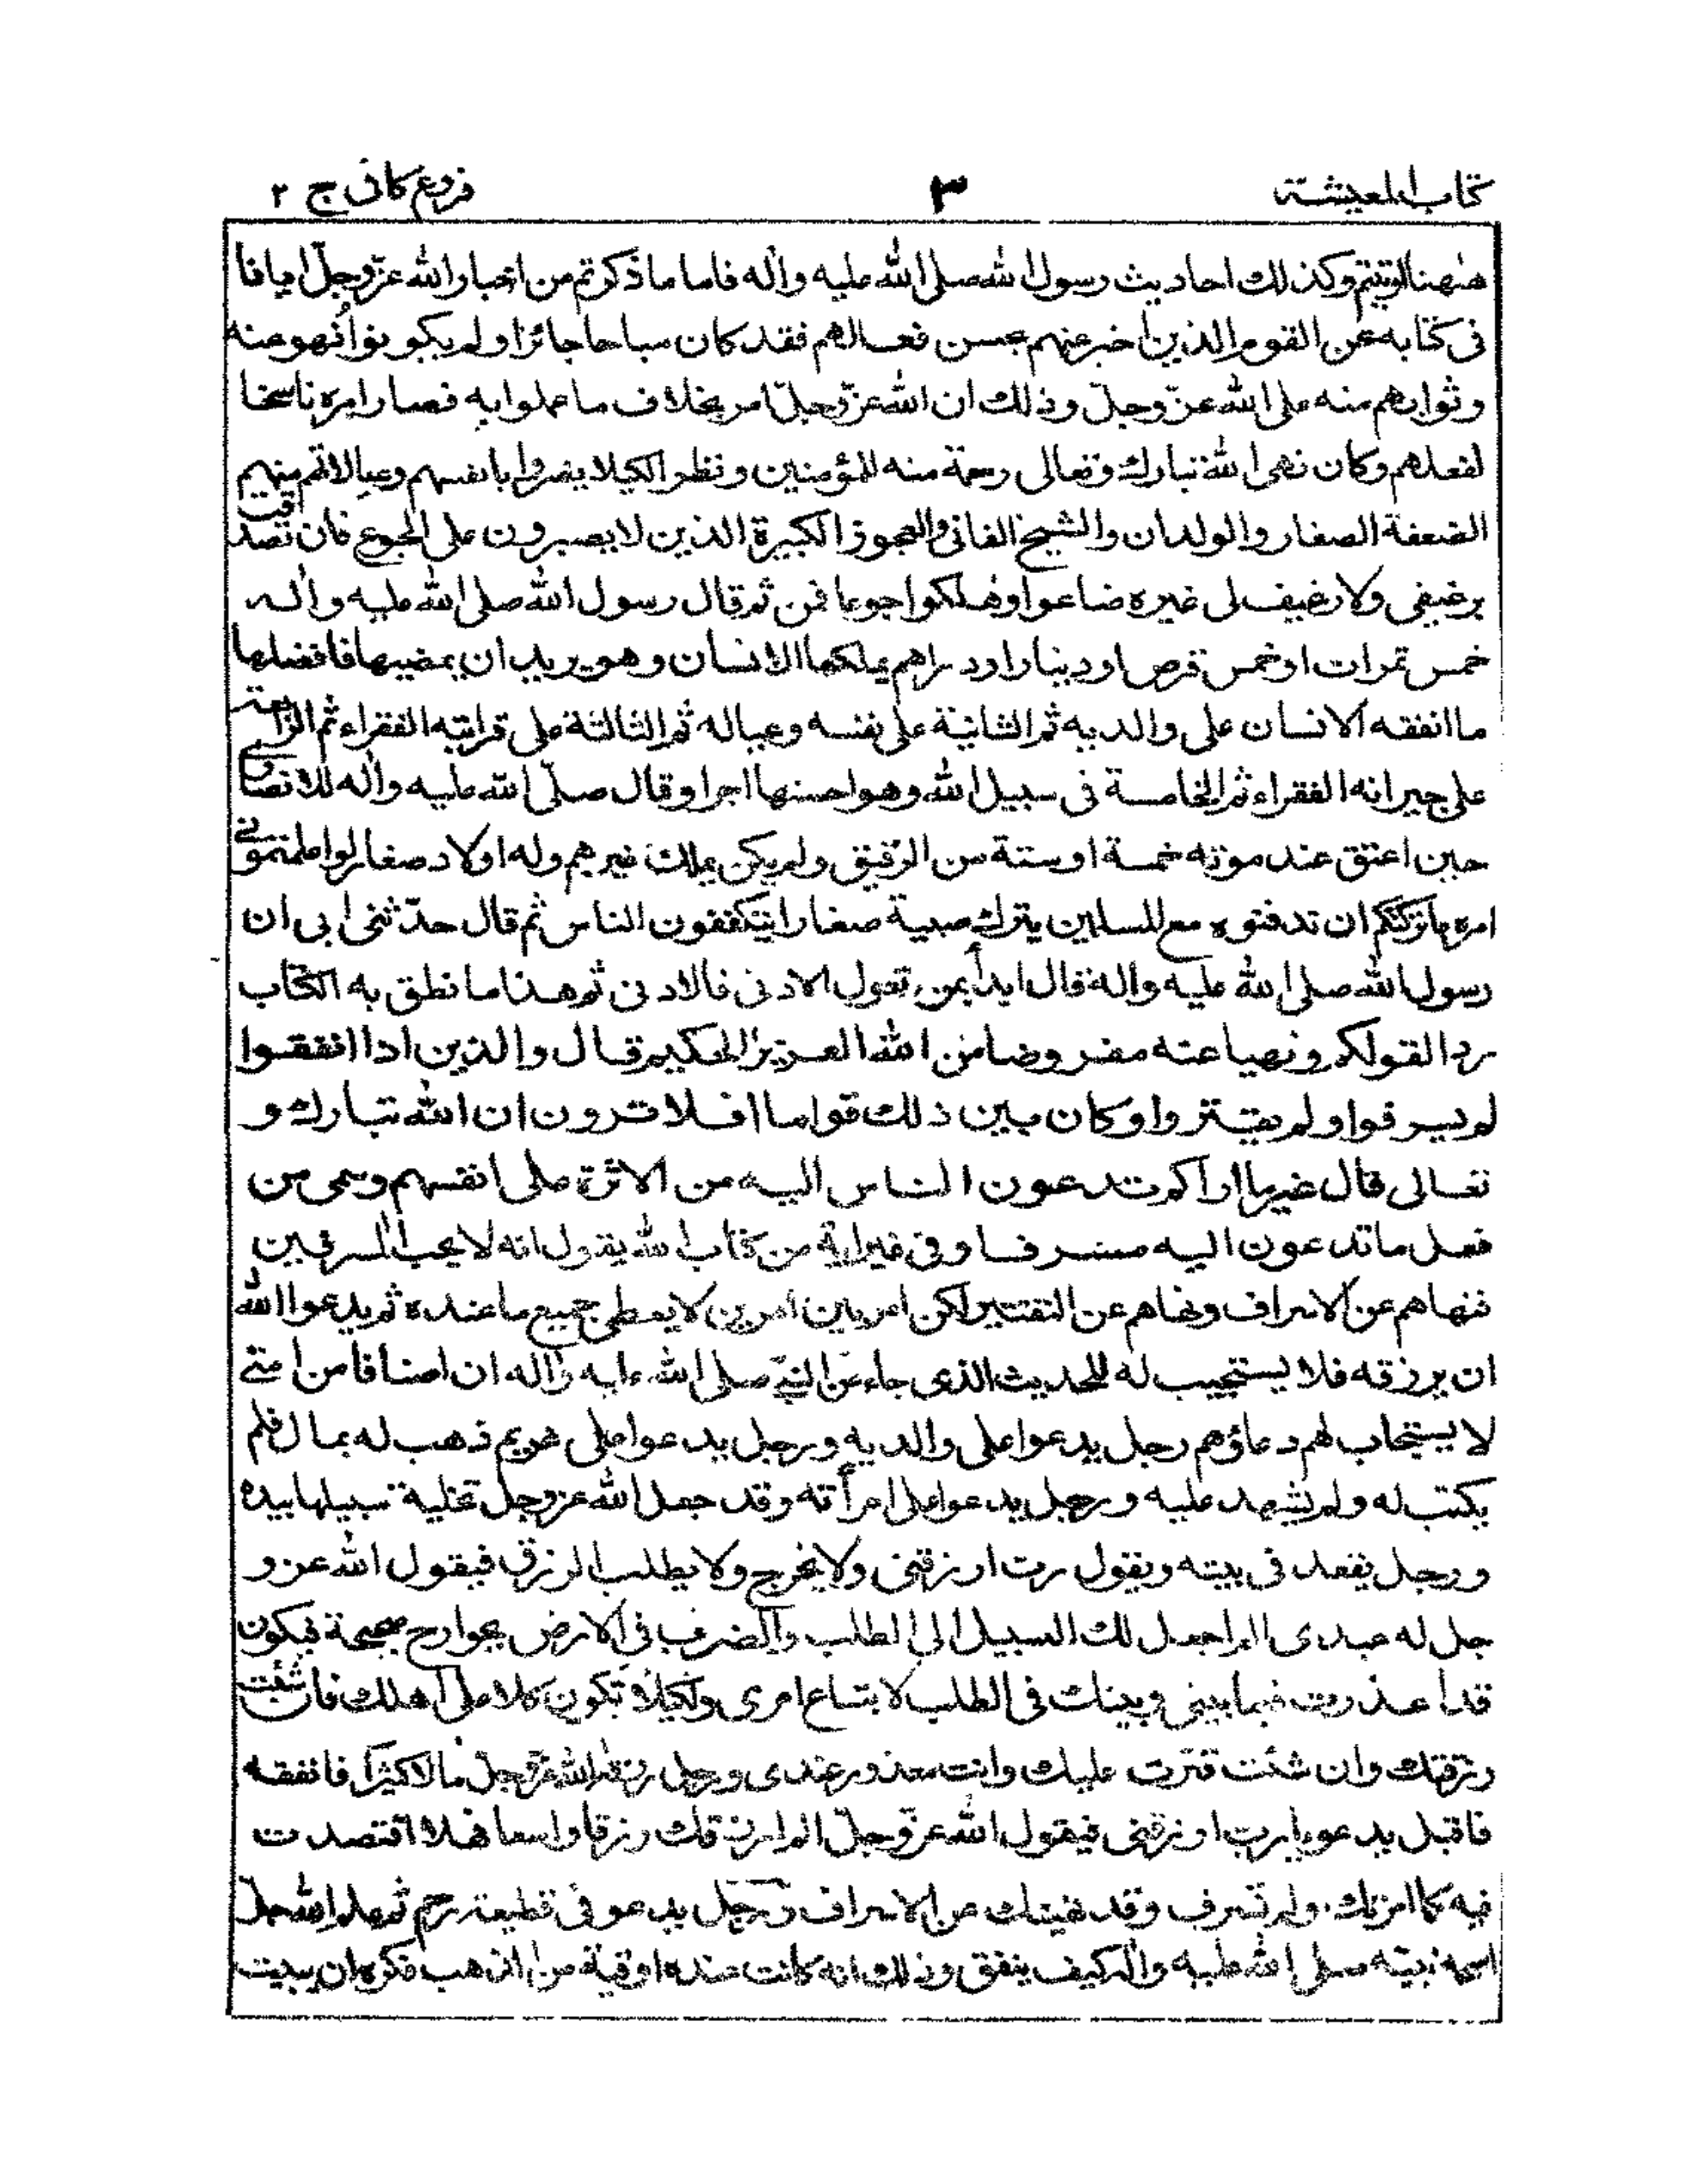 كتاب المعيشة ٣ فروع كافى ج ٢
ههنا اوتيتم وكذلك احاديث رسول الله صلى الله عليه وآله فاما ما ذكرتم من اخبار الله عز وجل ايانا
فى كتابه عن القوم الذين اخبر عنهم بحسن فعالهم فقد كان مباحا جائزا ولم يكونوا نهوا عنه
وثوابهم منه على الله عز وجل وذلك ان الله عز وجل امر بخلاف ما عملوا به فصار امره ناسخا
لفعلهم وكان نهى الله تبارك وتعالى رحمة منه للمؤمنين ونظرا لكيلا يضروا بانفسهم وعيالاتهم منهم
الضعفة الصغار والولدان والشيخ الفانى والعجوز الكبيرة الذين لا يصبرون على الجوع فان تصدقت
برغيفى ولا رغيف لى غيره ضاعوا وهلكوا جوعا فمن ثم قال رسول الله صلى الله عليه وآله
خمس تمرات او خمس قرص او دينار او دراهم يملكها الانسان وهو يريد ان يمضيها فافضلها
ما انفقه الانسان على والديه ثم الثانية على نفسه وعياله ثم الثالثة على قرابته الفقراء ثم الرابعة
على جيرانه الفقراء ثم الخامسة فى سبيل الله وهو احسنها اجرا وقال صلى الله عليه وآله للانصارى
حين اعتق عند موته خمسة او ستة من الرقيق ولم يكن يملك غيرهم وله اولاد صغار لو اعلمتمونى
امره ما تركتكم ان تدفنوه مع المسلمين يترك صبية صغارا يتكففون الناس ثم قال حدثنى ابى ان
رسول الله صلى الله عليه وآله قال ابدأ بمن تعول الادنى فالادنى ثم هذا ما نطق به الكتاب
ردا لقولكم ونهيا عنه مفروضا من الله العزيز الحكيم قال والذين اذا انفقوا
لم يسرفوا ولم يقتروا وكان بين ذلك قواما افلا ترون ان الله تبارك و
تعالى قال غير ما اراكم تدعون الناس اليه من الاثرة على انفسهم وسمى من
فعل ما تدعون اليه مسرفا وفى غير اية من كتاب الله يقول انه لا يحب المسرفين
فنهاهم عن الاسراف ونهاهم عن التقتير لكن امر بين امرين لا يعطى جميع ما عنده ثم يدعوا الله
ان يرزقه فلا يستجيب له للحديث الذى جاء عن النبى صلى الله عليه وآله ان اصنافا من امتى
لا يستجاب لهم دعاؤهم رجل يدعوا على والديه ورجل يدعوا على غريم ذهب له بمال فلم
يكتب له ولم يشهد عليه ورجل يدعوا على امرأته وقد جعل الله عز وجل تخلية سبيلها بيده
ورجل يقعد فى بيته ويقول رب ارزقنى ولا يخرج ولا يطلب الرزق فيقول الله عز و
جل له عبدى الم اجعل لك السبيل الى الطلب والضرب فى الارض بجوارح صحيحة فيكون
قد اعذرت فيما بينى وبينك فى الطلب لاتباع امرى ولكيلا تكون كلا على اهلك فان شئت
رزقتك وان شئت قترت عليك وانت معذور عندى ورجل رزقه الله عز وجل مالا كثيرا فانفقه
فاقبل يدعو يا رب ارزقنى فيقول الله عز وجل الم ارزقك رزقا واسعا فهلا اقتصدت
فيه كما امرتك ولم تسرف وقد نهيتك عن الاسراف ورجل يدعو فى قطيعة رحم ثم علم الله جل
اسمه نبيه صلى الله عليه وآله كيف ينفق وذلك انه كانت عنده اوقية من الذهب فكره ان يبيت